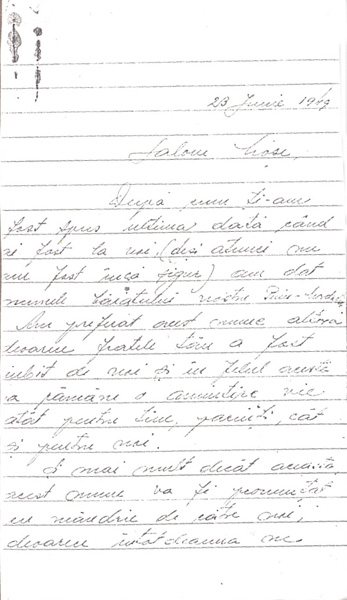 23 Junie 1949
Salom
După cum ți-am
fost spus ultima dată când
ai fost la noi, (deși atunci nu
am fost încă sigur) am dat
numele băiatului nostru
Am preferat acest nume altora
deoarece fratele tău a fost
iubit de noi și în felul acesta
va rămâne o amintire vie
atât pentru tine, părinți, cât
și pentru noi.
Și mai mult decât aceasta
acest nume va fi pronunțat
cu mândrie de către noi,
deoarece întotdeauna ne